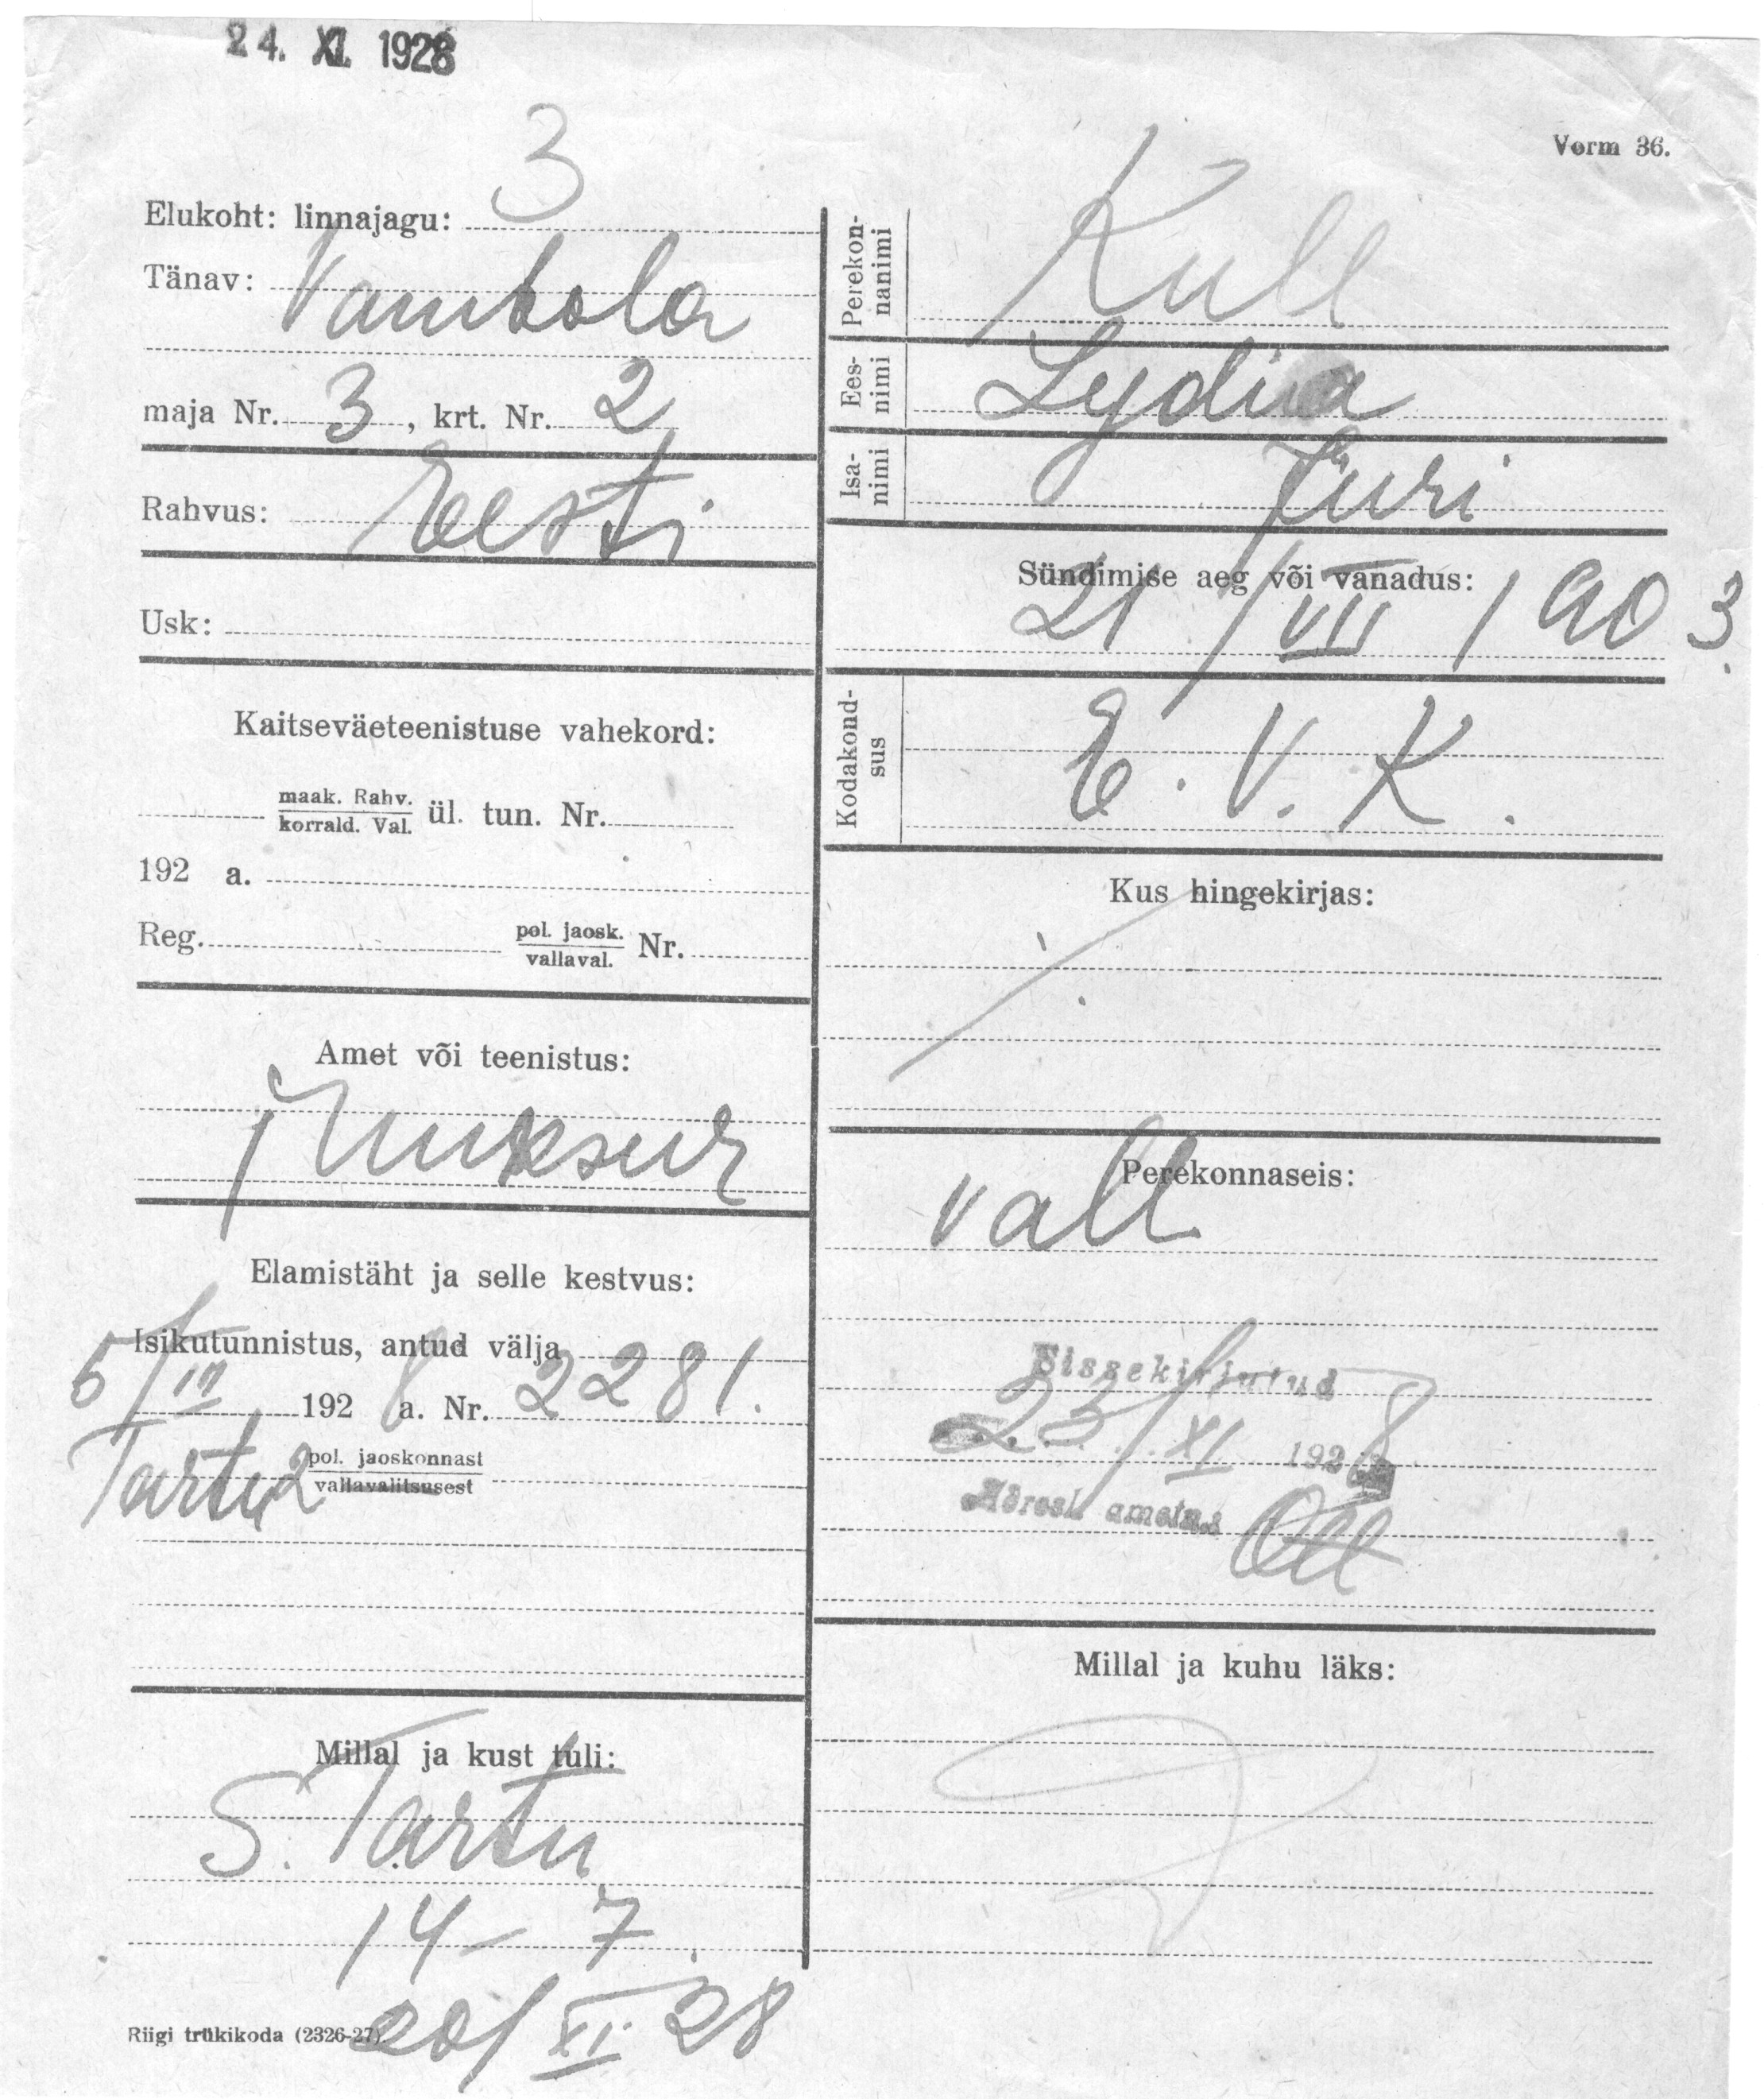 24. XI. 1928
Vorm 36.
3
Elukoht: linnajagu:
Tänav: Vambola
maja Nr. 3, krt. Nr. 2
Rahvus: Eesti
Usk:
Kaitseväeteenistuse vahekord:
maak. Rahv.
korrald. Val. ül. tun. Nr.
192 a.
Reg. pol. jaosk.
vallaval. Nr.
Amet või teenistus:
Juuksur
Elamistäht ja selle kestvus:
Isikutunnistus, antud välja
192 8 a. Nr. 2281.
Tartu 2 pol. jaoskonnast
vallavalitsusest
Millal ja kust tuli:
S. Tartu
14 – 7
20/XI 28
Riigi trükikoda (2326-27).
Perekon-
nanimi Kull
Ees-
nimi Lydia
Isa-
nimi Jüri
Sündimise aeg või vanadus:
21/VII 1903.
Kodakond-
sus E. V. K.
Kus hingekirjas:
Perekonnaseis:
vall
Sissekirjutud
23/XI 1928
Adressb ametn.
Millal ja kuhu läks: